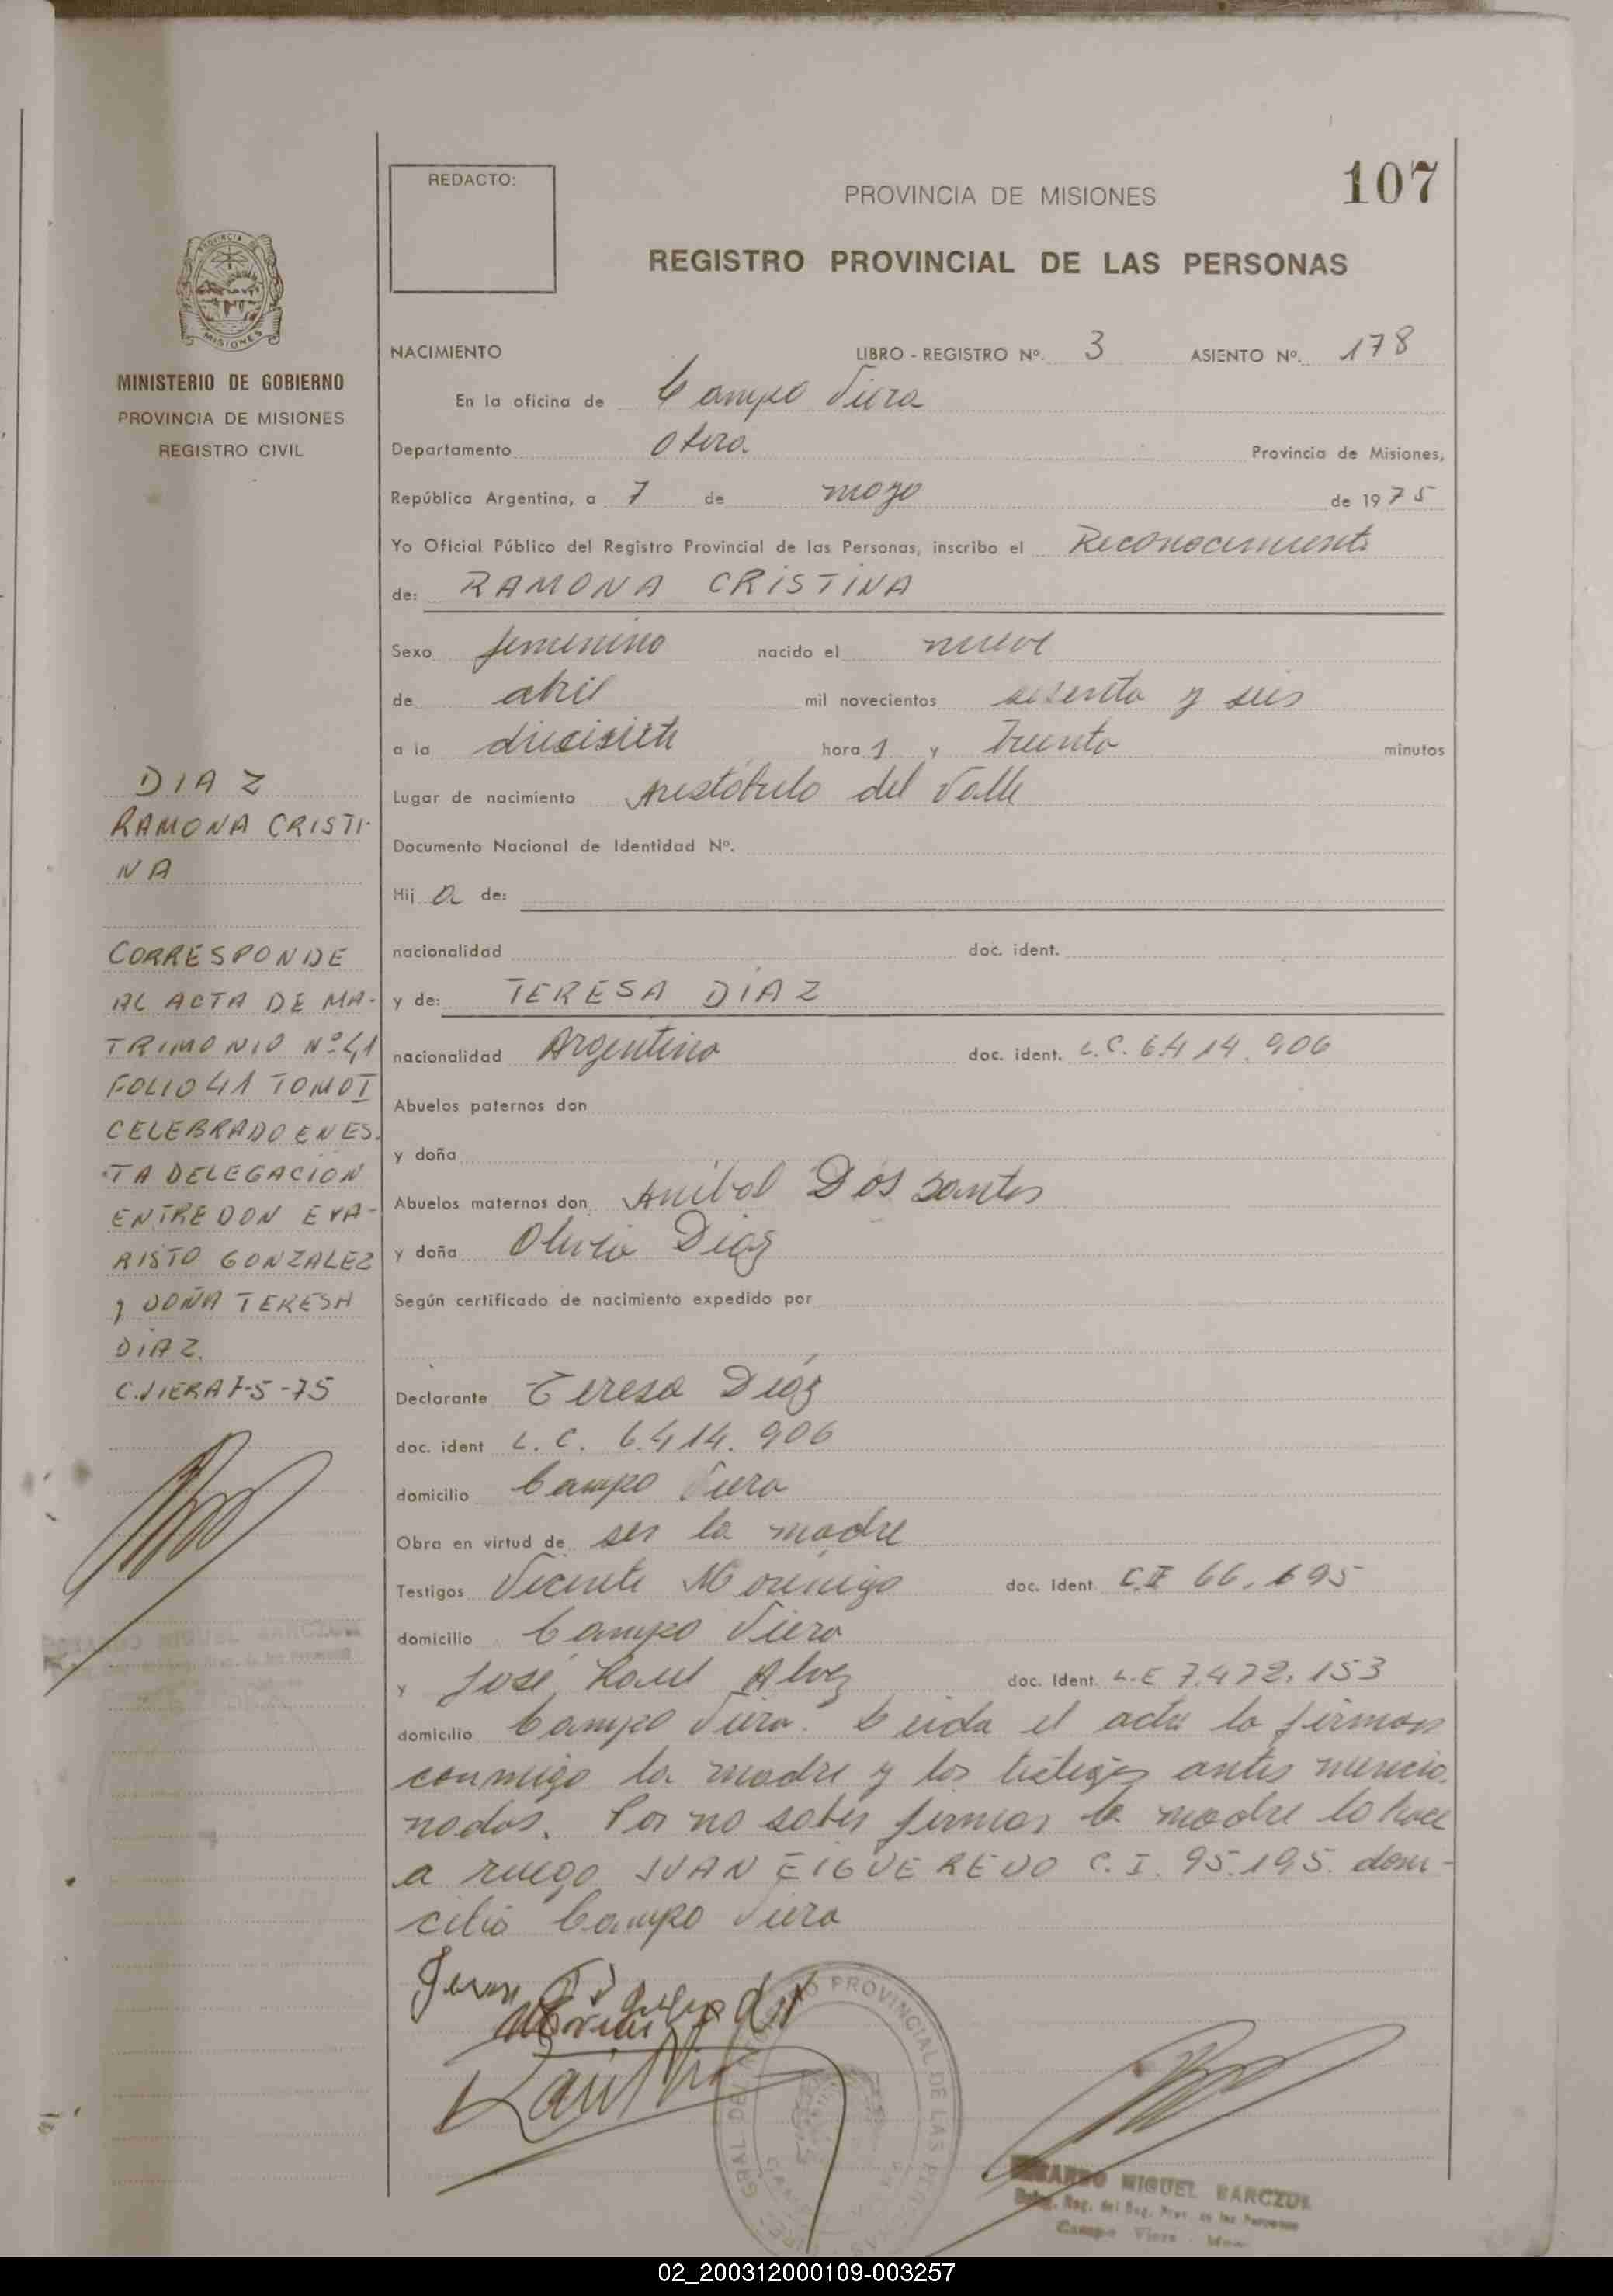 107
REDACTO:
PROVINCIA DE MISIONES
REGISTRO PROVINCIAL DE LAS PERSONAS
PROVINCIA DE
MISIONES
MINISTERIO DE GOBIERNO
PROVINCIA DE MISIONES
REGISTRO CIVIL
DIAZ
RAMONA CRISTI-
NA
CORRESPONDE
AL ACTA DE MA-
TRIMONIO Nº 41
FOLIO 41 TOMO I
CELEBRADO EN ES-
TA DELEGACION
ENTRE DON EVA-
RISTO GONZALEZ
y DOÑA TERESA
DIAZ.
C. VIERA 7-5-75
NACIMIENTO LIBRO - REGISTRO Nº. 3 ASIENTO Nº. 178
En la oficina de Campo Viera
Departamento Oberá Provincia de Misiones,
República Argentina, a 7 de mayo de 1975
Yo Oficial Público del Registro Provincial de las Personas, inscribo el Reconocimiento
de: RAMONA CRISTINA
Sexo femenino nacido el nueve
de abril mil novecientos sesenta y seis
a la diecisiete hora s y treinta minutos
Lugar de nacimiento Aristóbulo del Valle
Documento Nacional de Identidad Nº.
Hij a de:
nacionalidad doc. ident.
y de: TERESA DIAZ
nacionalidad Argentina doc. ident. L.C. 6.414.906
Abuelos paternos don
y doña
Abuelos maternos don Anibal Dos Santos
y doña Olivia Diaz
Según certificado de nacimiento expedido por
Declarante Teresa Diaz
doc. ident L. C. 6.414.906
domicilio Campo Viera
Obra en virtud de ser la madre
Testigos Vicente Morinigo doc. Ident. C.I 66.695
domicilio Campo Viera
y José Raul Alvez doc. Ident. L.E 7.472.153
domicilio Campo Viera. Leida el acta la firman
conmigo la madre y los testigos antes mencio-
nados. Por no saber firmar la madre lo hace
a ruego JUAN FIGUEREDO C. I. 95.195. domi-
cilio Campo Viera
PROVINCIAL DE LAS PERSONAS
MIGUEL BARCZUK
Campo Viera
02_200312000109-003257